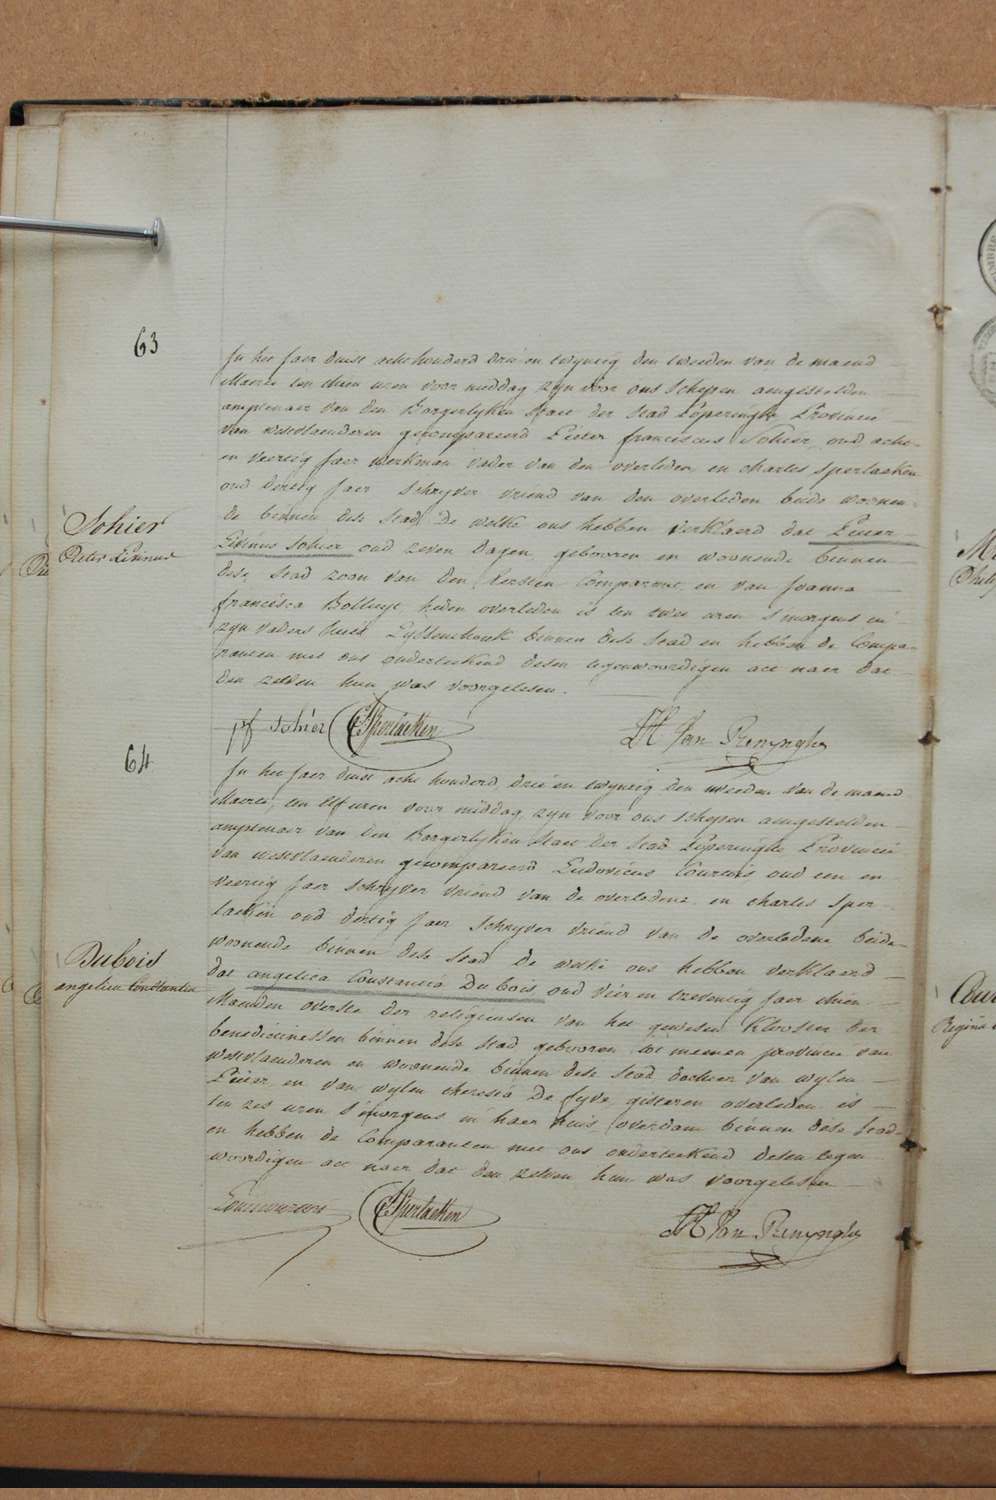 63
Sohier
Pieter Livinus
In het jaer duist acht honderd drie en twyntig den tweeden van de maend
Maerte ten thien uren voor middag zyn voor ons schepen aengestelden
amptenaer van den Borgerlyken Staet der Stad Poperinghe Provincie
van westvlaenderen gecompareerd Pieter franciscus Sohier, oud acht-
en veertig jaer werkman vader van den overleden en charles Sperlaeken
oud dertig jaer schryver vriend van den overleden beide woonen-
de binnen dese Stad De welke ons hebben verklaerd dat Pieter
Livinus Sohier oud zeven dagen, gebooren en woonende binnen
dese Stad zoon van den Eersten Comparant en van Joanna
francisca Bolluyt, heden overleden is ten twee uren s'morgens in
zyn vaders huis binnen dese Stad en hebben de Compa-
ranten met ons onderteekend desen tegenwoordigen act naer dat
den zelven hun was voorgelesen.
pf Sohier C Sperlaeken Van Renynghe
64
Dubois
angelica Constantia
In het jaer duist acht honderd, drie en twyntig den tweeden van de maend
Maerte, ten elf uren voor middag, zyn voor ons schepen aengestelden
amptenaer van den Borgerlyken Staet der Stad Poperinghe Provincie
van westvlaenderen gecompareerd Ludovicus oud een en
veertig jaer schryver vriend van de overledene en charles Sper-
laeken oud dertig jaer schryver vriend van de overledene beide
woonende binnen dese Stad De welke ons hebben verklaerd
dat angelica Constancia Du bois oud vier en tzeventig jaer thien
Maenden overste der religieusen van het gewesen Klooster der
benedictinessen binnen dese Stad gebooren tot meenen provincie van
westvlaenderen en woonende binnen dese Stad dochter van wylen
Pieter, en van wylen theresia De fyve, gisteren overleden is
ten zes uren s'morgens in haer huis, overdam binnen dese Stad
en hebben de Comparanten met ons onderteekend desen tegen
woordigen act naer dat den zelven hun was voorgelesen
C Sperlaeken Van Renynghe